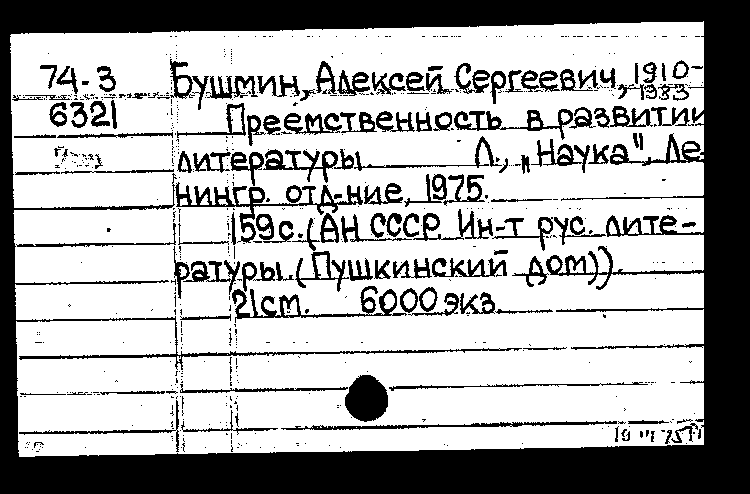 74-3 Бушмин, Алексей Сергеевич, 1910-
1983
6321 Преемственность в развитии
литературы. Л., „Наука", Ле
нингр. отд-ние, 1975.
159с. (АН СССР. Ин-т рус. лите-
ратуры. (Пушкинский дом)).
21см. 6000 экз.